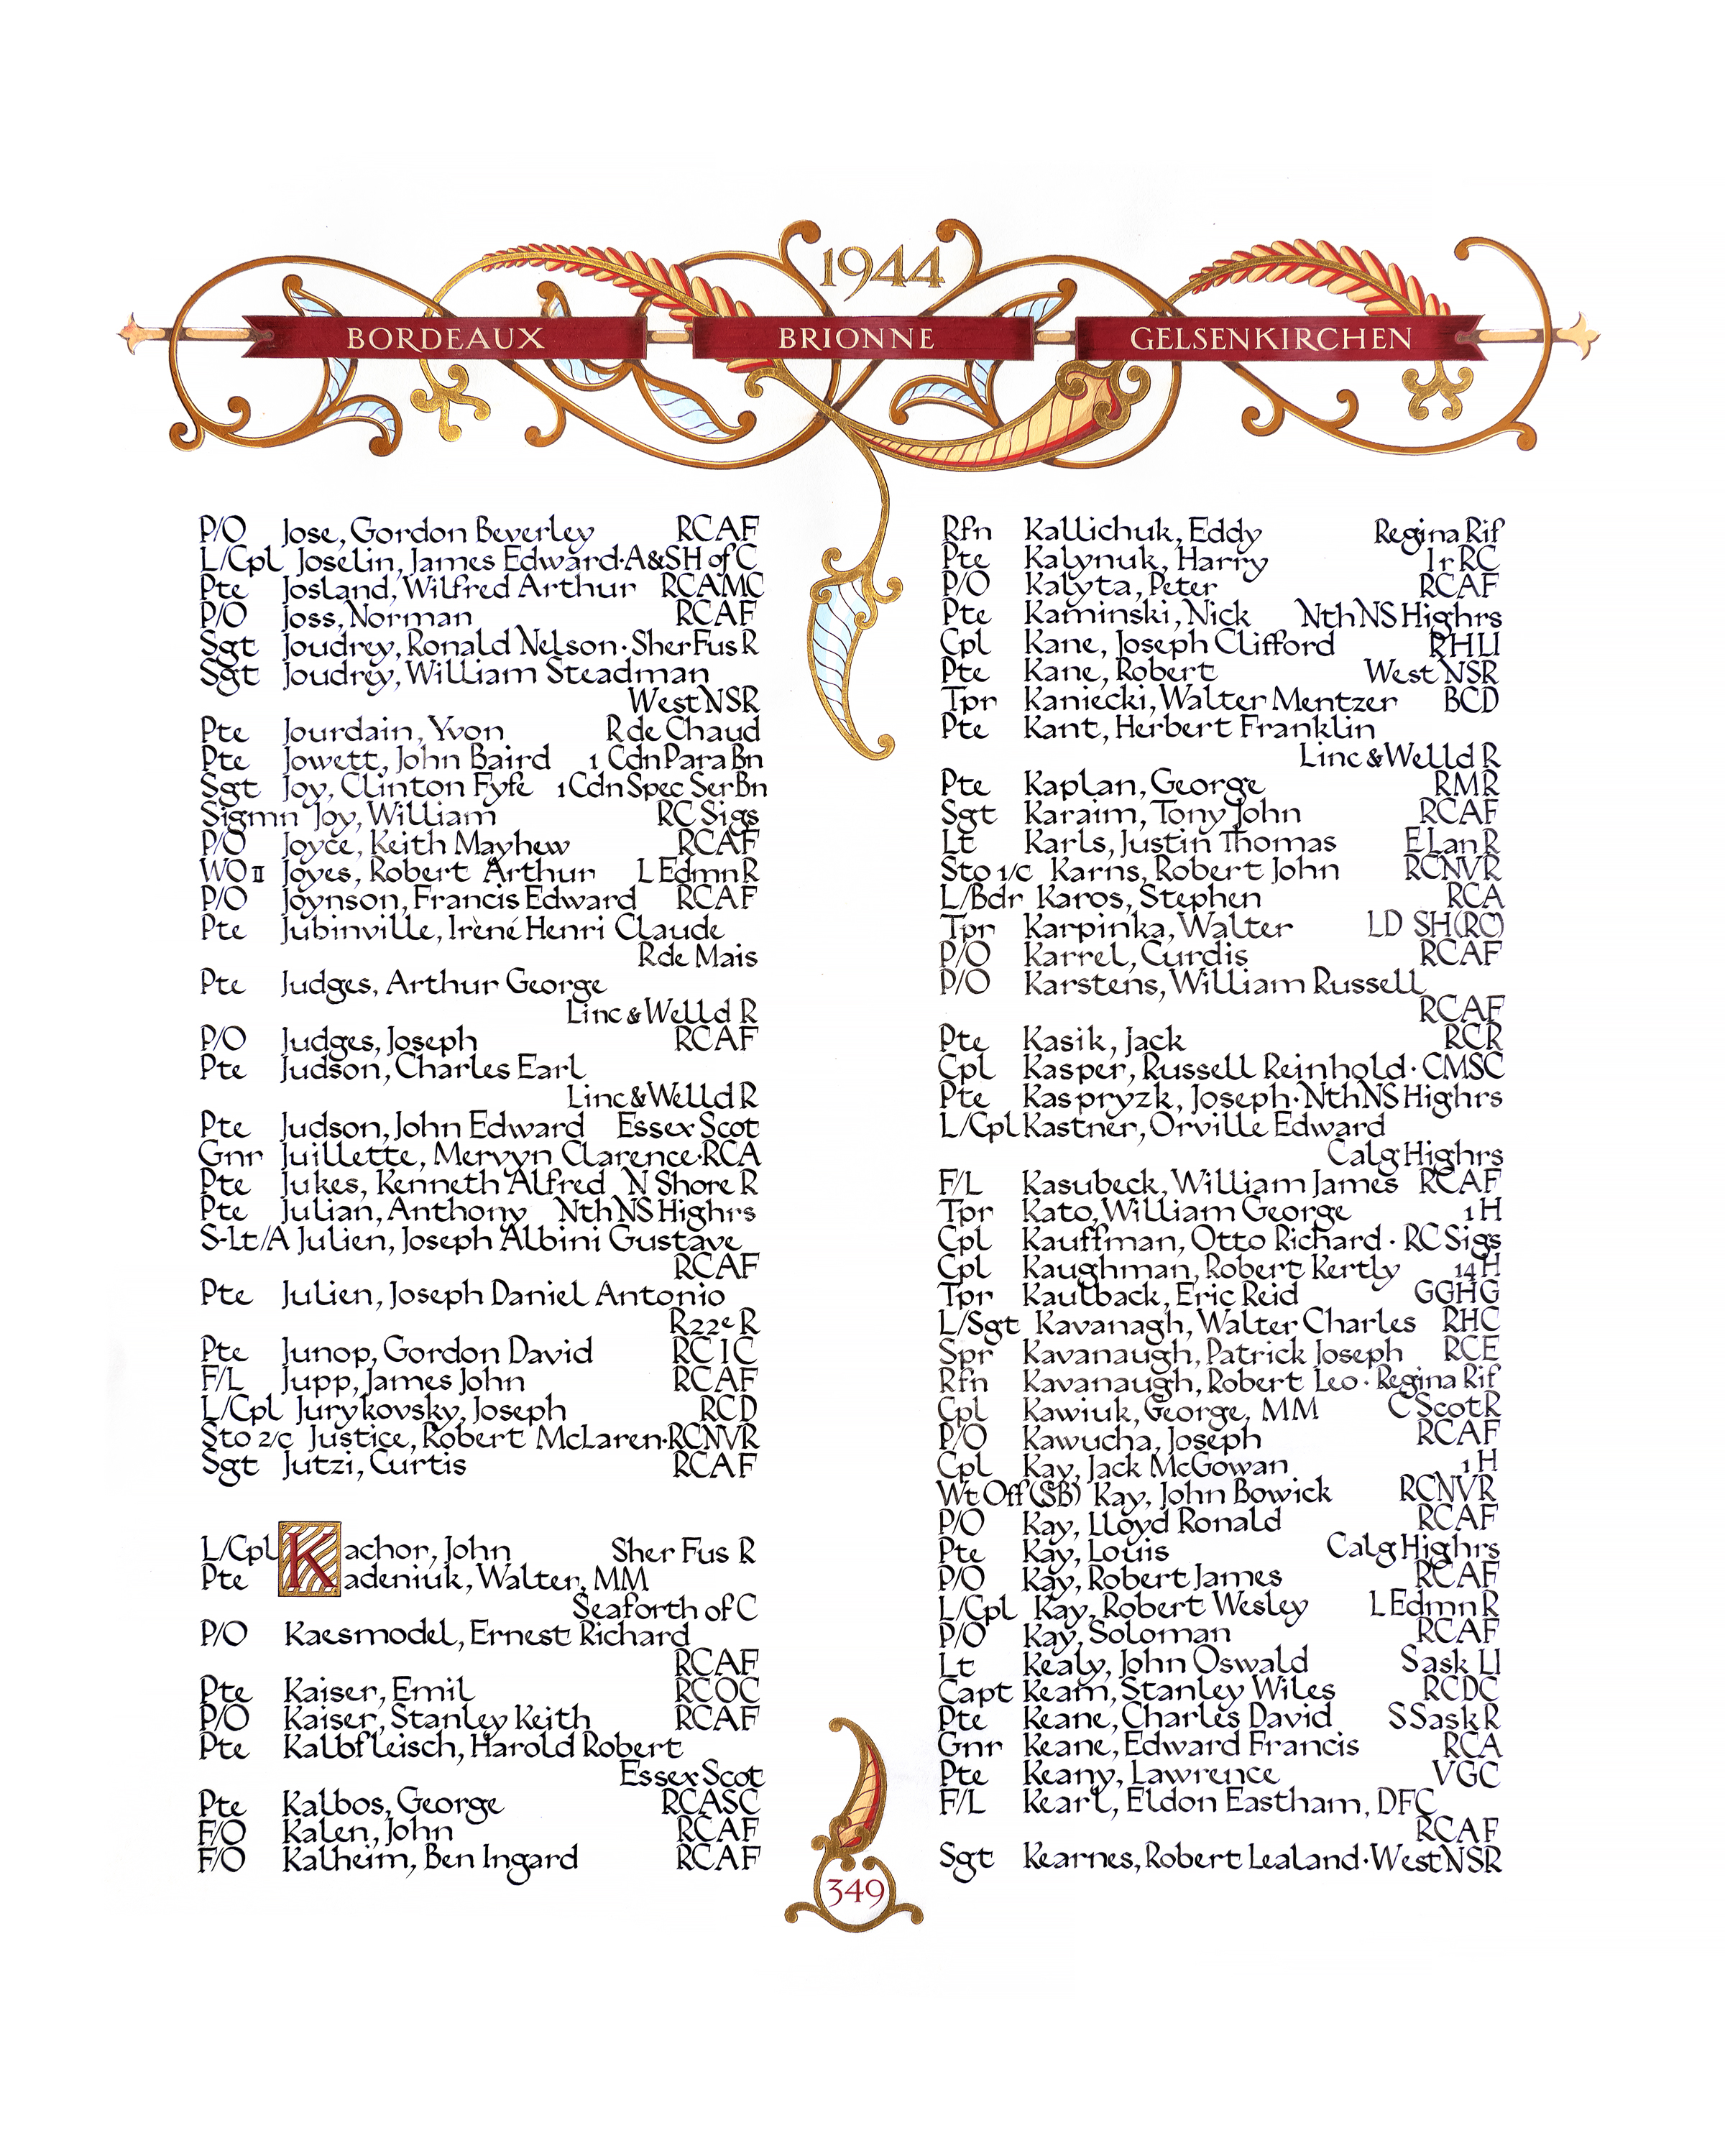 1944
BORDEAUX BRIONNE GELSENKIRCHEN
P/O Jose, Gordon Beverley RCAF
L/Cpl Joselin, James Edward·A&SH of C
Pte Josland, Wilfred Arthur RCAMC
P/O Joss, Norman RCAF
Sgt Joudrey, Ronald Nelson·Sher Fus R
Sgt Joudrey, William Steadman
West NSR
Pte Jourdain, Yvon R de Chaud
Pte Jowett, John Baird 1 Cdn Para Bn
Sgt Joy, Clinton Fyfe 1 Cdn Spec Ser Bn
Sigmn Joy, William RC Sigs
P/O Joyce, Keith Mayhew RCAF
WO II Joyes, Robert Arthur L Edmn R
P/O Joynson, Francis Edward RCAF
Pte Jubinville, Irèné Henri Claude
R de Mais
Pte Judges, Arthur George
Linc & Welld R
P/O Judges, Joseph RCAF
Pte Judson, Charles Earl
Linc & Welld R
Pte Judson, John Edward Essex Scot
Gnr Juillette, Mervyn Clarence·RCA
Pte Jukes, Kenneth Alfred N Shore R
Pte Julian, Anthony Nth NS Highrs
S-Lt/A Julien, Joseph Albini Gustave
RCAF
Pte Julien, Joseph Daniel Antonio
R22eR
Pte Junop, Gordon David RCIC
F/L Jupp, James John RCAF
L/Cpl Jurykovsky, Joseph RCD
Sto 2/c Justice, Robert McLaren·RCNVR
Sgt Jutzi, Curtis RCAF
L/Cpl Kachor, John Sher Fus R
Pte Kadeniuk, Walter, MM
Seaforth of C
P/O Kaesmodel, Ernest Richard
RCAF
Pte Kaiser, Emil RCOC
P/O Kaiser, Stanley Keith RCAF
Pte Kalbfleisch, Harold Robert
Essex Scot
Pte Kalbos, George RCASC
F/O Kalen, John RCAF
F/O Kalheim, Ben Ingard RCAF
Rfn Kallichuk, Eddy Regina Rif
Pte Kalynuk, Harry Ir RC
P/O Kalyta, Peter RCAF
Pte Kaminski, Nick Nth NS Highrs
Cpl Kane, Joseph Clifford RHLI
Pte Kane, Robert West NSR
Tpr Kaniecki, Walter Mentzer BCD
Pte Kant, Herbert Franklin
Linc & Welld R
Pte Kaplan, George RMR
Sgt Karaim, Tony John RCAF
Lt Karls, Justin Thomas E Lan R
Sto 1/c Karns, Robert John RCNVR
L/Bdr Karos, Stephen RCA
Tpr Karpinka, Walter LD SH(RC)
P/O Karrel, Curdis RCAF
P/O Karstens, William Russell
RCAF
Pte Kasik, Jack RCR
Cpl Kasper, Russell Reinhold·CMSC
Pte Kaspryzk, Joseph·Nth NS Highrs
L/Cpl Kastner, Orville Edward
Calg Highrs
F/L Kasubeck, William James RCAF
Tpr Kato, William George 1 H
Cpl Kauffman, Otto Richard · RC Sigs
Cpl Kaughman, Robert Kertly 14 H
Tpr Kaulback, Eric Reid GGHG
L/Sgt Kavanagh, Walter Charles RHC
Spr Kavanaugh, Patrick Joseph RCE
Rfn Kavanaugh, Robert Leo · Regina Rif
Cpl Kawiuk, George, MM C Scot R
P/O Kawucha, Joseph RCAF
Cpl Kay, Jack McGowan 1 H
Wt Off (SB) Kay, John Bowick RCNVR
P/O Kay, Lloyd Ronald RCAF
Pte Kay, Louis Calg Highrs
P/O Kay, Robert James RCAF
L/Cpl Kay, Robert Wesley L Edmn R
P/O Kay, Soloman RCAF
Lt Kealy, John Oswald Sask LI
Capt Keam, Stanley Wiles RCDC
Pte Keane, Charles David S Sask R
Gnr Keane, Edward Francis RCA
Pte Keany, Lawrence VGC
F/L Kearl, Eldon Eastham, DFC
RCAF
Sgt Kearnes, Robert Lealand·West NSR
349